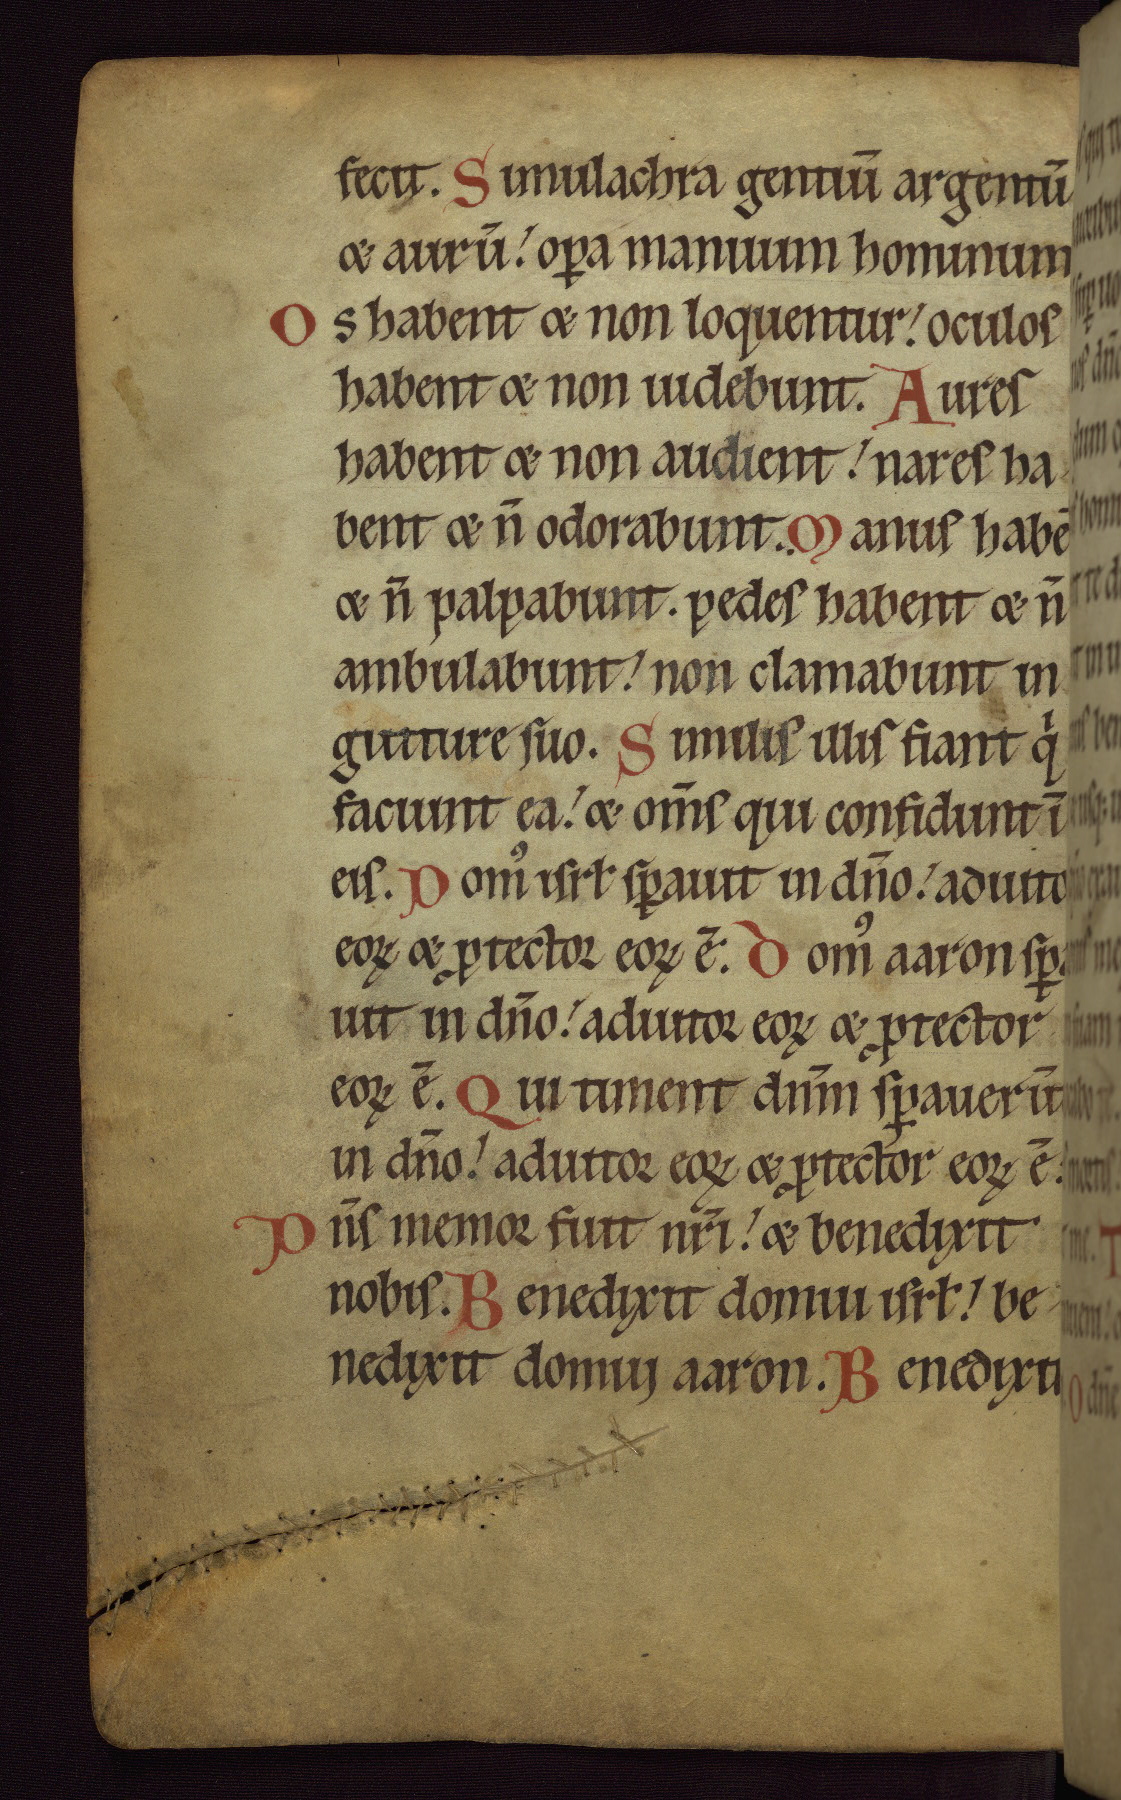 fecit. Simulachra gentiū argentū
& aurū! oꝑa manuum hominum
Os habent & non loquentur! oculos
habent & non uidebunt. Aures
habent & non audient! nares ha
bent & n̄ odorabunt. Manus habē
& n̄ palpabunt. pedes habent & n̄
ambulabunt! non clamabunt in
gutture suo. Similis illis fiant qͥ
faciunt ea! & om̄s qui confidunt ī
eis. Domꝰ isrł sꝑauit in dn̄o! adiuto
eoꝝ & ꝓtector eoꝝ ē. Domꝰ aaron sꝑa
uit in dn̄o! adiutor eoꝝ & ꝓtector
eoꝝ ē. Qui timent dnm̄ sꝑauerūt
in dn̄o! adiutor eoꝝ & ꝓtector eoꝝ ē.
Dn̄s memor fuit nr̄i! & benedixit
nobis. Benedixit domui isrł! be
nedixit domui aaron. Benedixit